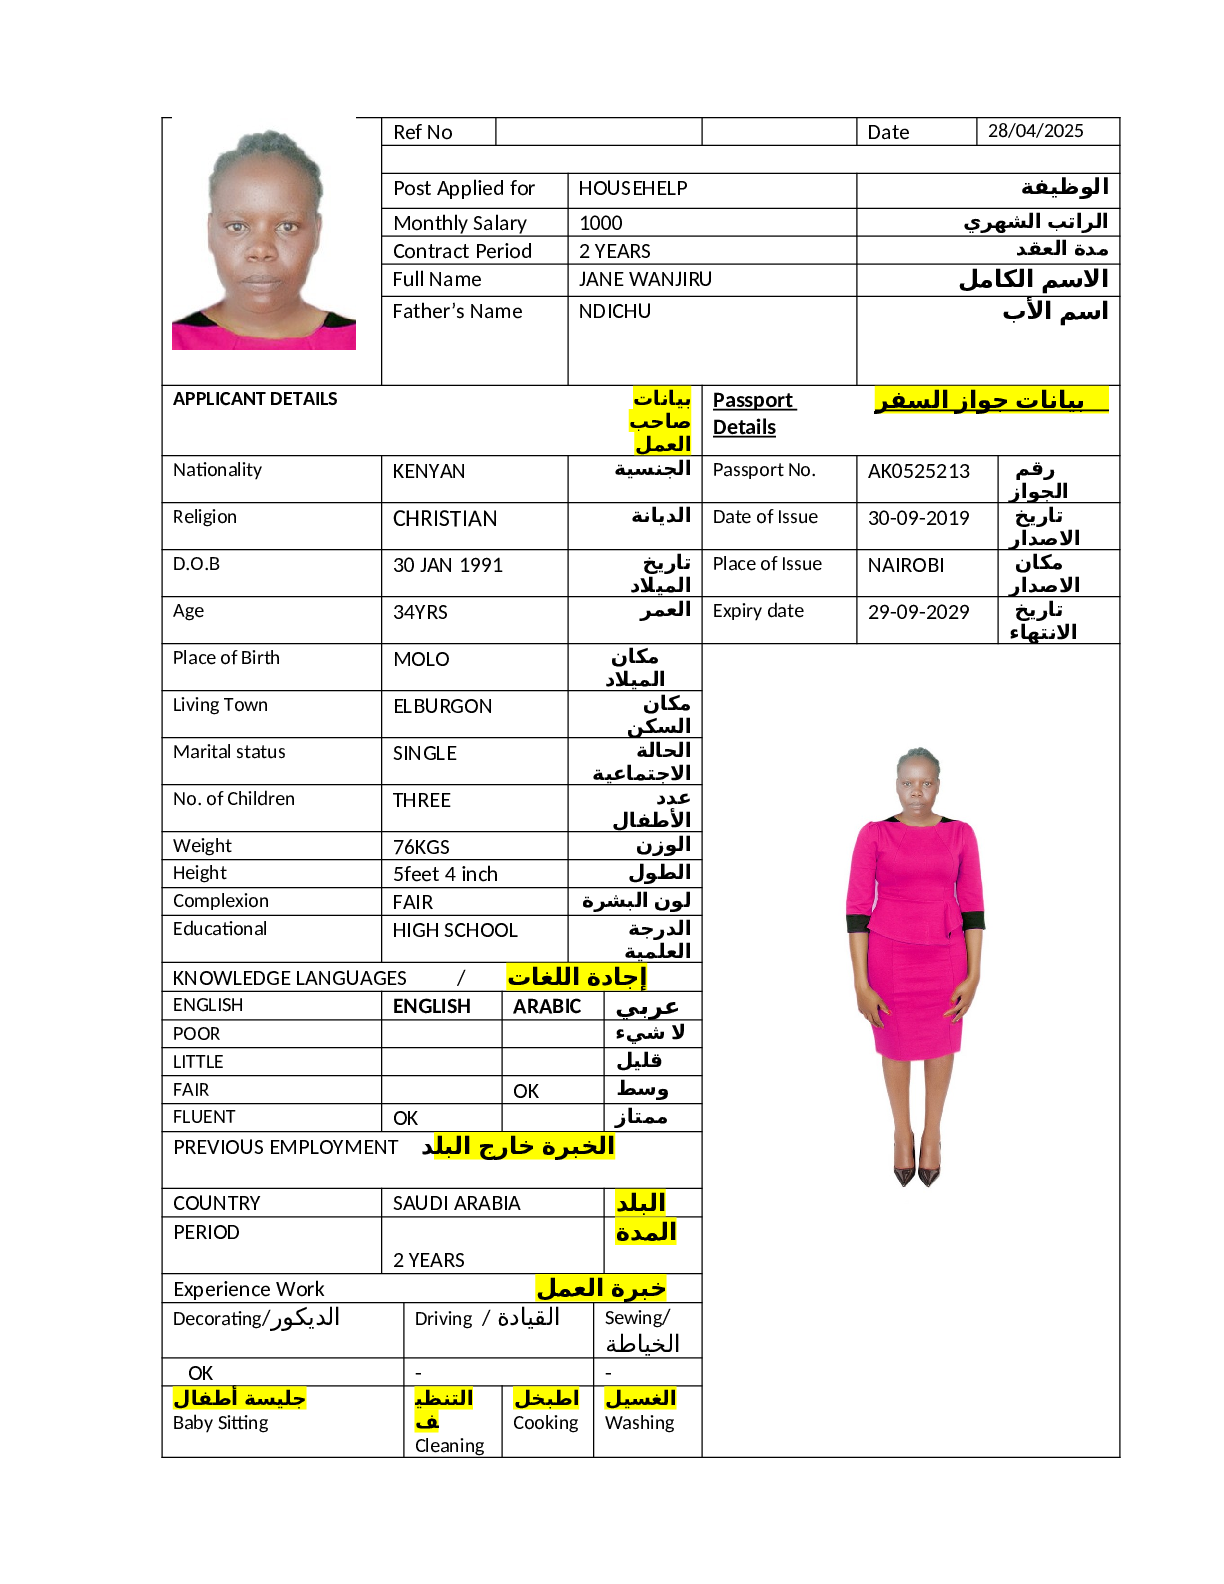 Ref No Date 28/04/2025
Post Applied for HOUSEHELP الوظيفة
Monthly Salary 1000 الراتب الشهري
Contract Period 2 YEARS مدة العقد
Full Name JANE WANJIRU الاسم الكامل
Father’s Name NDICHU اسم الأب
APPLICANT DETAILS بيانات صاحب العمل Passport Details بيانات جواز السفر
Nationality KENYAN الجنسية Passport No. AK0525213 رقم الجواز
Religion CHRISTIAN الديانة Date of Issue 30-09-2019 تاريخ الاصدار
D.O.B 30 JAN 1991 تاريخ الميلاد Place of Issue NAIROBI مكان الاصدار
Age 34YRS العمر Expiry date 29-09-2029 تاريخ الانتهاء
Place of Birth MOLO مكان الميلاد
Living Town ELBURGON مكان السكن
Marital status SINGLE الحالة الاجتماعية
No. of Children THREE عدد الأطفال
Weight 76KGS الوزن
Height 5feet 4 inch الطول
Complexion FAIR لون البشرة
Educational HIGH SCHOOL الدرجة العلمية
KNOWLEDGE LANGUAGES / إجادة اللغات
ENGLISH ENGLISH ARABIC عربي
POOR لا شيء
LITTLE قليل
FAIR OK وسط
FLUENT OK ممتاز
PREVIOUS EMPLOYMENT الخبرة خارج البلد
COUNTRY SAUDI ARABIA البلد
PERIOD 2 YEARS المدة
Experience Work خبرة العمل
Decorating/الديكور Driving / القيادة Sewing/ الخياطة
OK - -
جليسة أطفال التنظيف اطبخل الغسيل
Baby Sitting Cleaning Cooking Washing